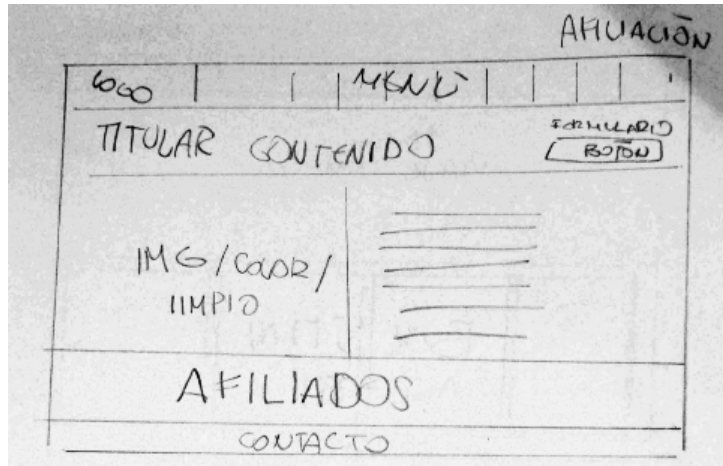 AFILIACIÓN
LOGO MENÚ
TITULAR CONTENIDO
FORMULARIO
BOTÓN
IMG/COLOR/
LIMPIO
AFILIADOS
CONTACTO